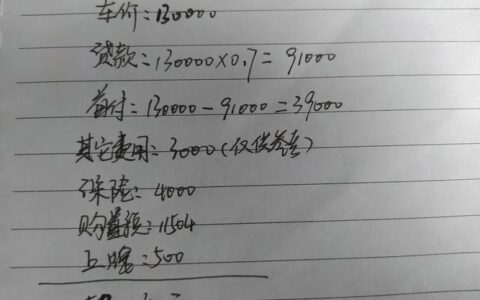 车价:130000
贷款:130000×0.7=91000
首付:130000-91000=39000
其它费用:3000(仅供参考)
保险:4000
购置税:11504
上牌:500